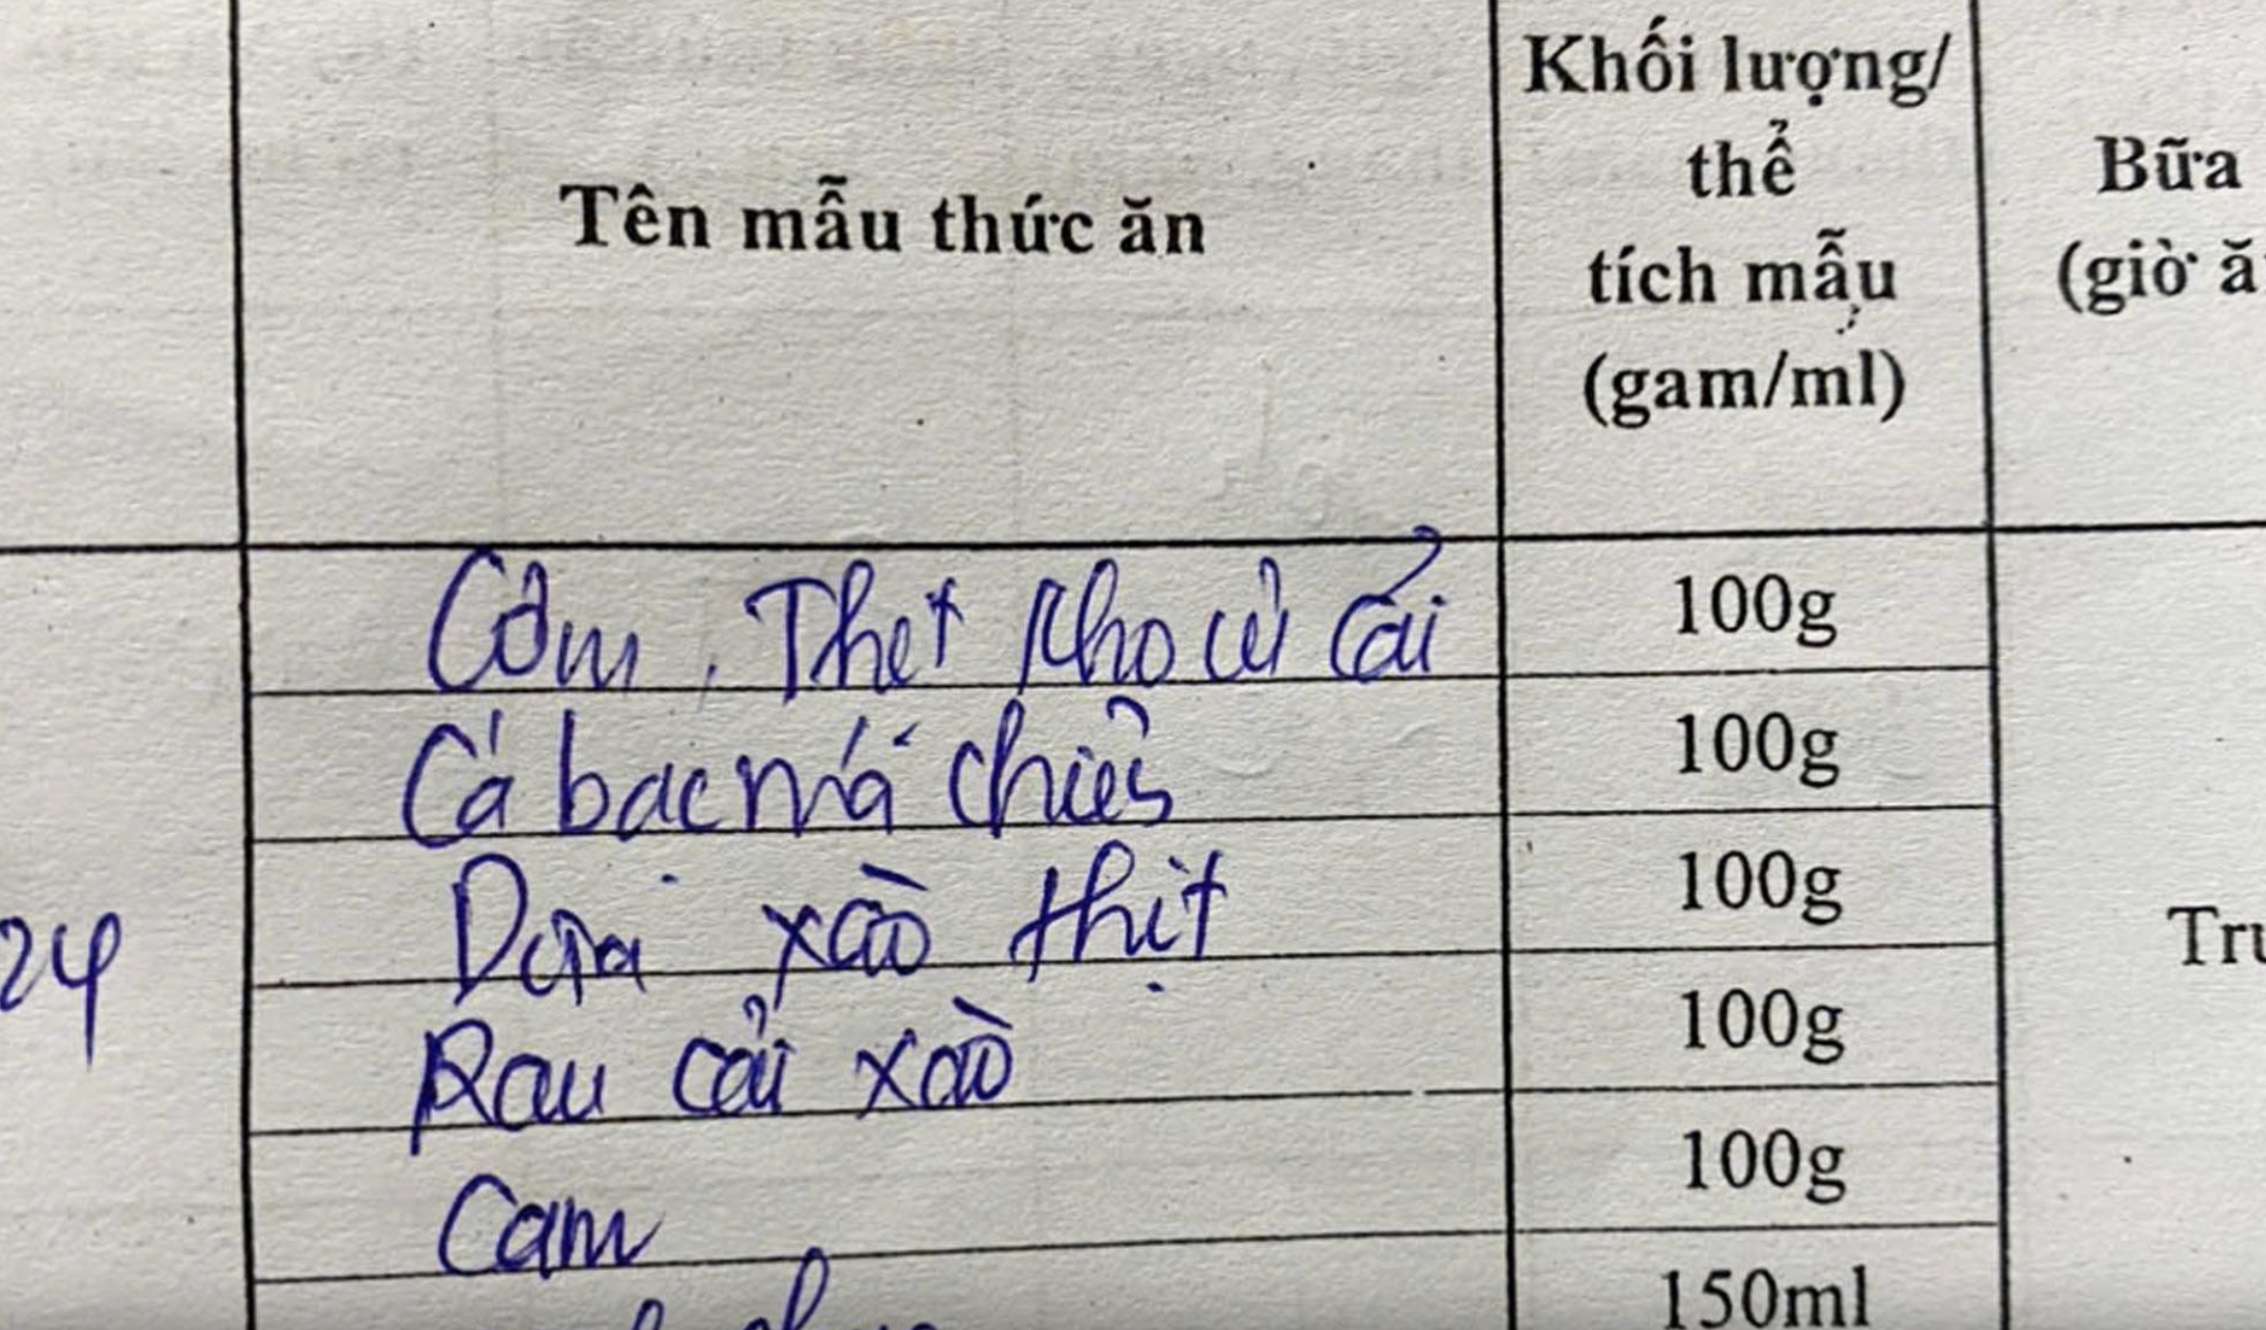 Tên mẫu thức ăn
Khối lượng/
thể
tích mẫu
(gam/ml)
Bữa
(giờ ă
Cơm, Thịt kho củ cải
100g
Cá bạc má chiên
100g
Dưa xào thịt
100g
24
Rau cải xào
100g
Cam
100g
150ml